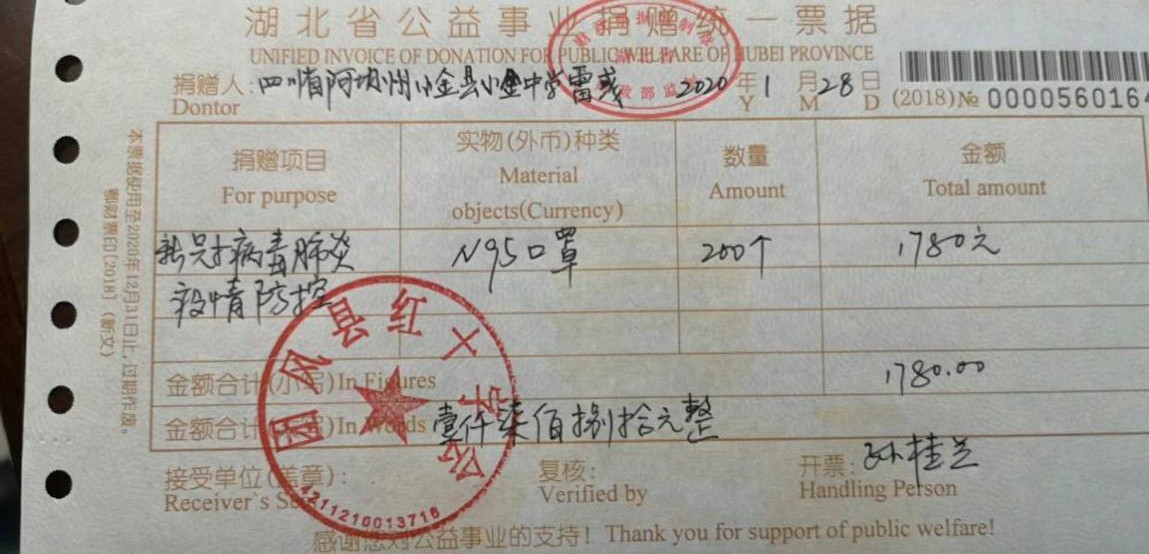 湖北省公益事业捐赠统一票据
UNIFIED INVOICE OF DONATION FOR PUBLIC WELFARE OF HUBEI PROVINCE
捐赠人:四川省阿坝州小金县小金中学雷彧 2020年1月28日
Dontor Y M D (2018)№ 0000560164
捐赠项目 实物(外币)种类 数量 金额
For purpose Material objects(Currency) Amount Total amount
新冠病毒肺炎 N95口罩 200个 1780元
疫情防控
金额合计(小写)In Figures 1780.00
金额合计 In Words 壹仟柒佰捌拾元整
接受单位(盖章): 复核: 开票:孙桂兰
Receiver's Verified by Handling Person
感谢您对公益事业的支持! Thank you for support of public welfare!
本票据使用至2020年12月31日止,过期作废。
鄂财票印[2018](新文)
团风县红十字会
4211210013716